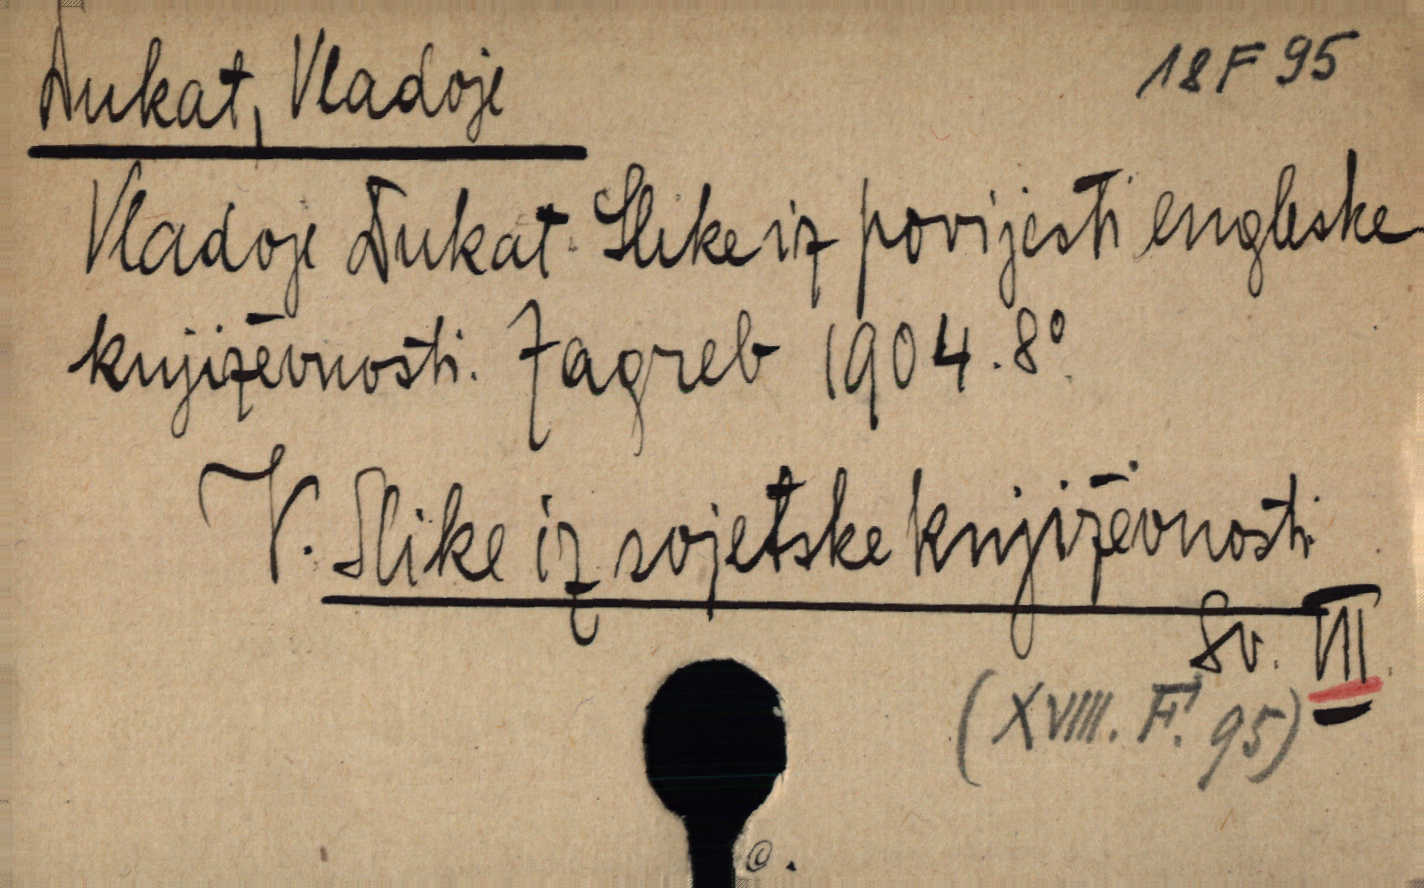 Dukat, Vladoje
18 F 95
Vladoje Dukat. Slike iz povijesti engleske
književnosti. Zagreb 1904. 8º.
V. Slike iz svjetske književnosti
Sv. VII.
(XVIII. F. 95)
©.